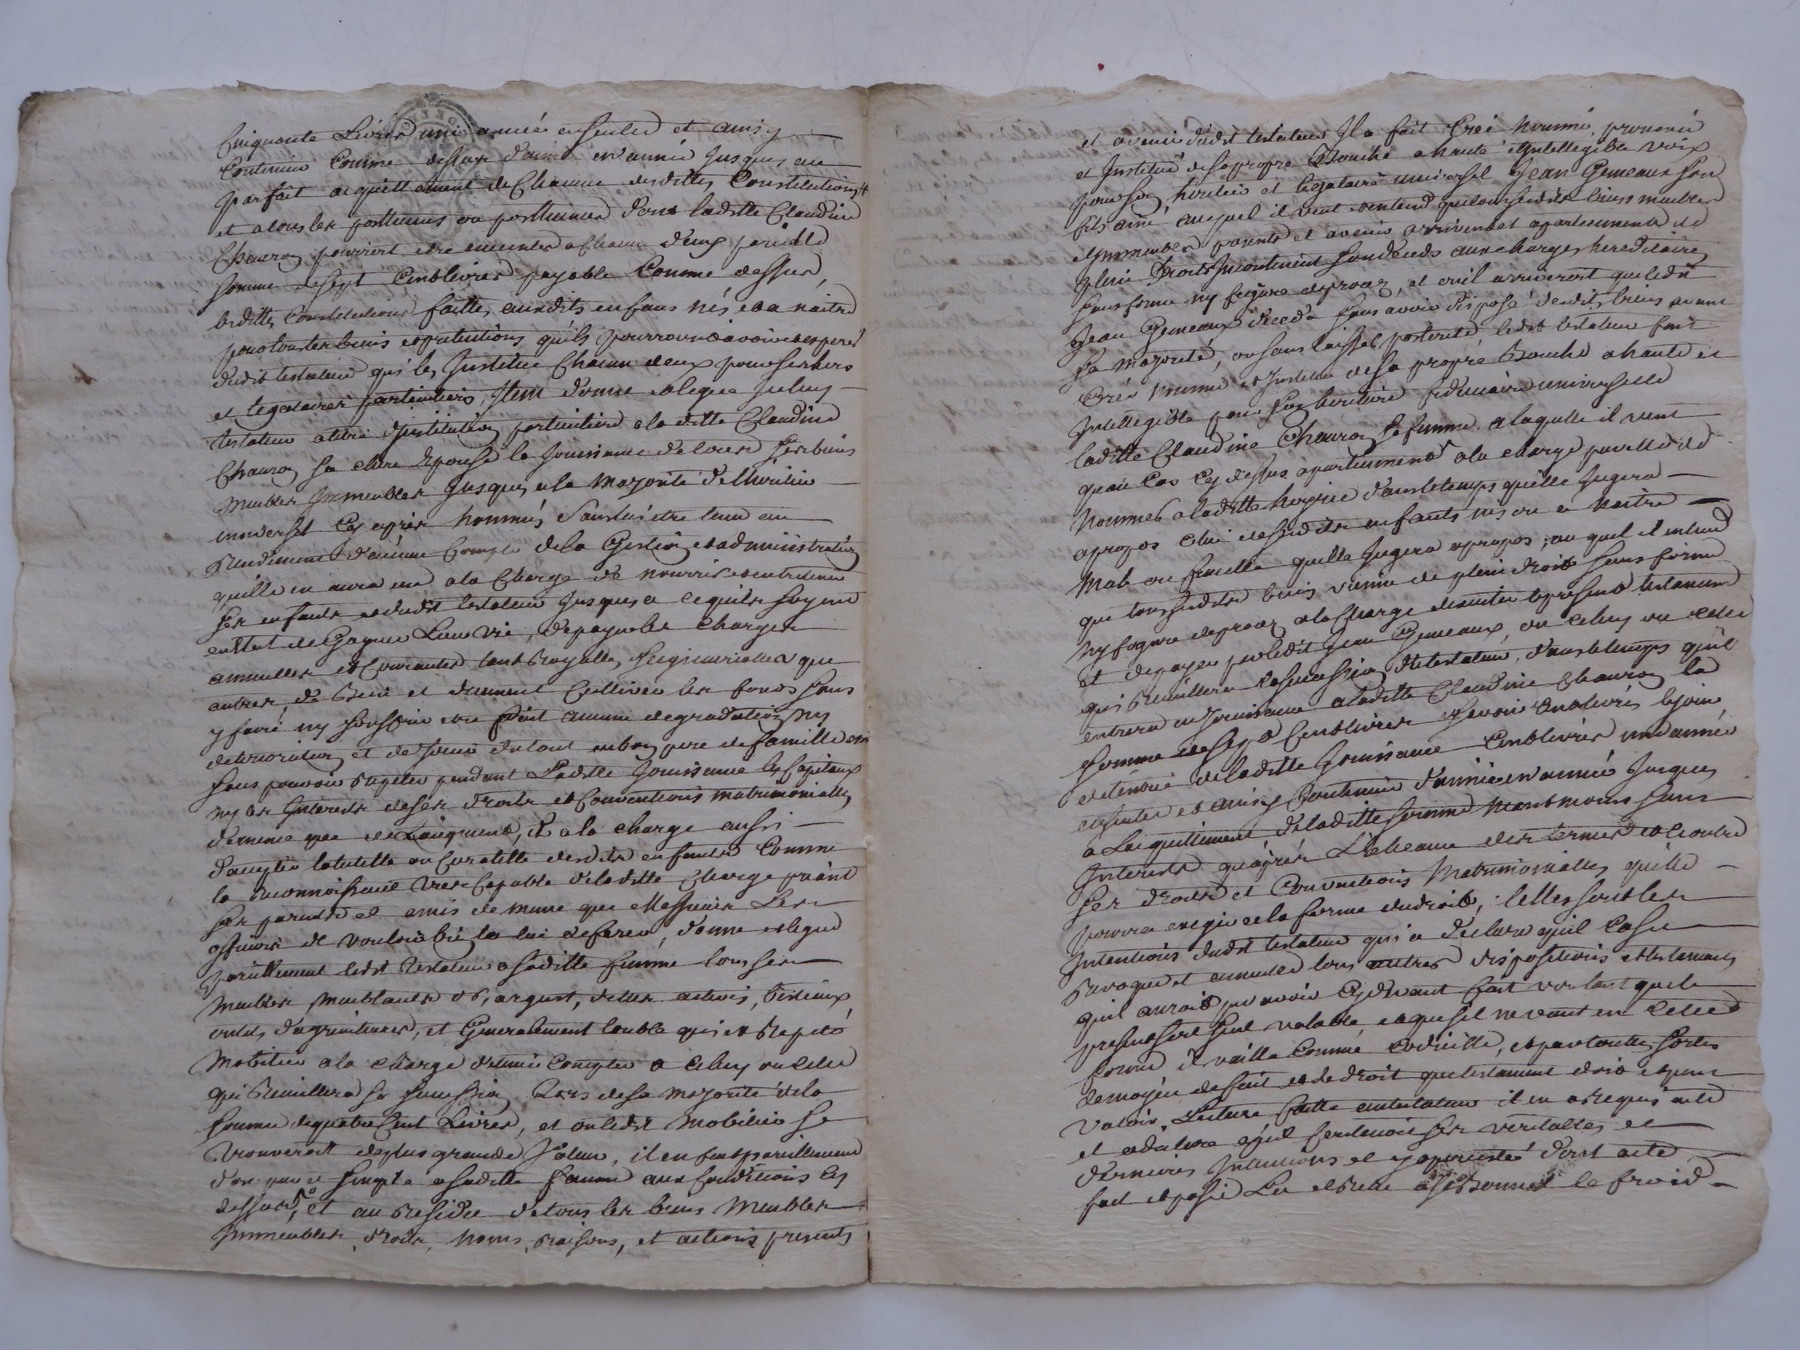 Cinquante Livres une année ensuitte et ainsy
Continuer Comme dessus d'année en année Jusques au
parfait acquittement de Chacune desdittes Constitutions
et a tous les posthumes ou posthumes dont laditte Claudine
Chauron pourroit etre enceinte a Chacun d'eux pareille
somme de sept Cent livres payable Comme dessus,
lesdittes Constitutions faittes auxdits enfans nés et a naitre
pour tous les biens et pretentions qu'ils pourroient avoir et esperer
dudit testateur qui les Institue Chacun d'eux pour ses hers
et legataires particuliers, Item donne et legue Icelluy
testateur a titre d'institution particuliere a la ditte Claudine
Chauron sa chere Epouse la Jouissance de tous ses biens
Meubles Immeubles Jusques a la Majorité de l'heritier
universel Cy apres nommé, sans etre tenu en
Rendement d'aucun Compte de la Gestion et administration
quelle en aura eue a la Charge de nourrir et entretenir
ses enfants et dudit testateur Jusques a ce quils soyent
en Etat de Gagner Leur Vie, de payer les charges
annuelles et Courantes tant Royalles, seigneurialles que
autres, de Bien et duement Cultiver les fonds sans
y faire ny souffrir etre fait aucune degradation ny
deterioration et de Jouir du tout en bon pere de famille
sans pouvoir Repeter pendant Laditte Jouissance les Capitaux
ny les Interets de ses droits et Conventions matrimonialles
de meme que de Laugment, et a la charge aussi
d'accepter la tutelle ou Curatelle desdits enfants Comme
la Reconnoissant tres Capable de laditte Charge priant
ses parents et amis de meme que Messieurs Les
officiers de vouloir bien la lui deferer, donne et legue
pareillement ledit testateur a saditte femme tous ses
meubles meublants or, argent, dettes actives, bestiaux
outils d'agriculture, et Generalement tout ce qui est Reputé
Mobilier a la charge d'tenir compter a Celuy ou Celle
qui Recuillera sa succession Lors de sa majorité de la
somme de quatre Cent Livres, et ou ledit Mobilier se
trouveroit de plus grande valeur, il en fait pareillement
don pur et simple a saditte femme aux Conditions Cy
dessus, et au Residu de tous ses biens Meubles
Immeubles, droits, Noms, Raisons, et actions presents
et avenir dudit testateur Il a fait Creé Nommé, prononcé
et Institué de sa propre Bouche a haute et Intelligible voix
pour son heritier et legataire universel Jean Gemeaux son
fils ainé auquel il veut entend que tous sesdits biens meubles
et Immeubles presents et avenir arrivent et apartiennent de
plein Droit Incontinent son deceds aux charges hereditaires
sans forme ny figure de procez, et ou il arriveroit que ledit
Jean Gemeaux deceda sans avoir disposé desdits biens avant
sa majorité, ou sans laisser posterité, ledit testateur fait
Creé Nomme et Institue de sa propre Bouche a haute et
Intelligible pour son heritiere fiduciaire universelle
laditte Claudine Chauron sa femme a laquelle il veut
quau Cas Cy dessus apartiennent a la charge par elle de
Nommer a laditte hoyrie dans le temps quelle Jugera
apropos celui de sesdits enfants nés ou a naitre
Male ou femelle quelle Jugera apropos, au quel il entend
que tous sesdits biens vienne de plein droit sans forme
ny figure de procez a la charge d'executer le present testament
et de payer par ledit Jean Gemeaux, ou Celuy ou Celle
qui Recuillera sa succession dudit testateur, dans le temps qu'il
entrera en Jouissance a laditte Claudine Chauron la
somme de sept Cent livres savoir Cent livres le jour
de laditte Jouissance Cent livres une année
ensuitte et ainsy Continuer d'année en année Jusques
a Lacquittement de laditte somme Neantmoins sans
Interets qu'après L'Echeance des termes et outre
ses droits et Conventions Matrimonialles quelle
pourra exiger de la forme du droit, telles sont les
Intentions dudit testateur qui a declaré quil Casse
Revoque et annulle tous autres dispositions et testaments
quil auroit pu avoir Cydevant fait voulant que le
present soit seul valable et que sil ne vaut en cette
forme il vaille comme codicille, et par toutes sortes
de moyen de fait et de droit que testament doit et peut
valoir, Lecture faitte au testateur il en a Requis acte
et a declaré quil Contenoit ses veritables et
dernieres Intentions et y a persisté dont acte
fait et passé Lu et Relu a St Bonnet le froid